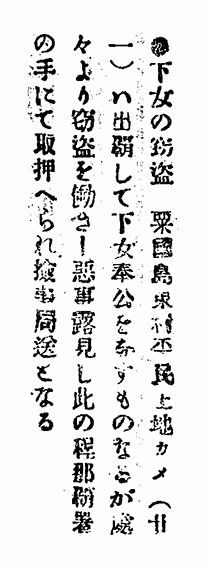 ●下女の窃盗　粟國島東村平民上地カメ（廿
一）ハ出覇して下女奉公を為すものなるが處
々より窃盗を働き悪事露見し此の程那覇署
の手にて取押へられ檢事局送となる